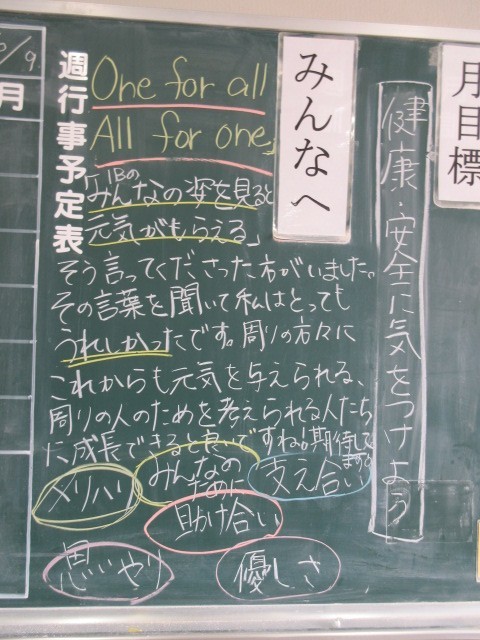 6/9
月
週行事予定表
One for all
All for one」
「1Bの
みんなの姿を見ると
元気がもらえる」
そう言ってくださった方がいました。
その言葉を聞いて私はとっても
うれしかったです。周りの方々に
これからも元気を与えられる、
周りの人のためを考えられる人たち
に成長できると良いですね。期待して
ますよ
メリハリ
みんなの
ために
支え合い
助け合い
思いやり
優しさ
みんなへ
健康・安全に気をつけよう
月目標